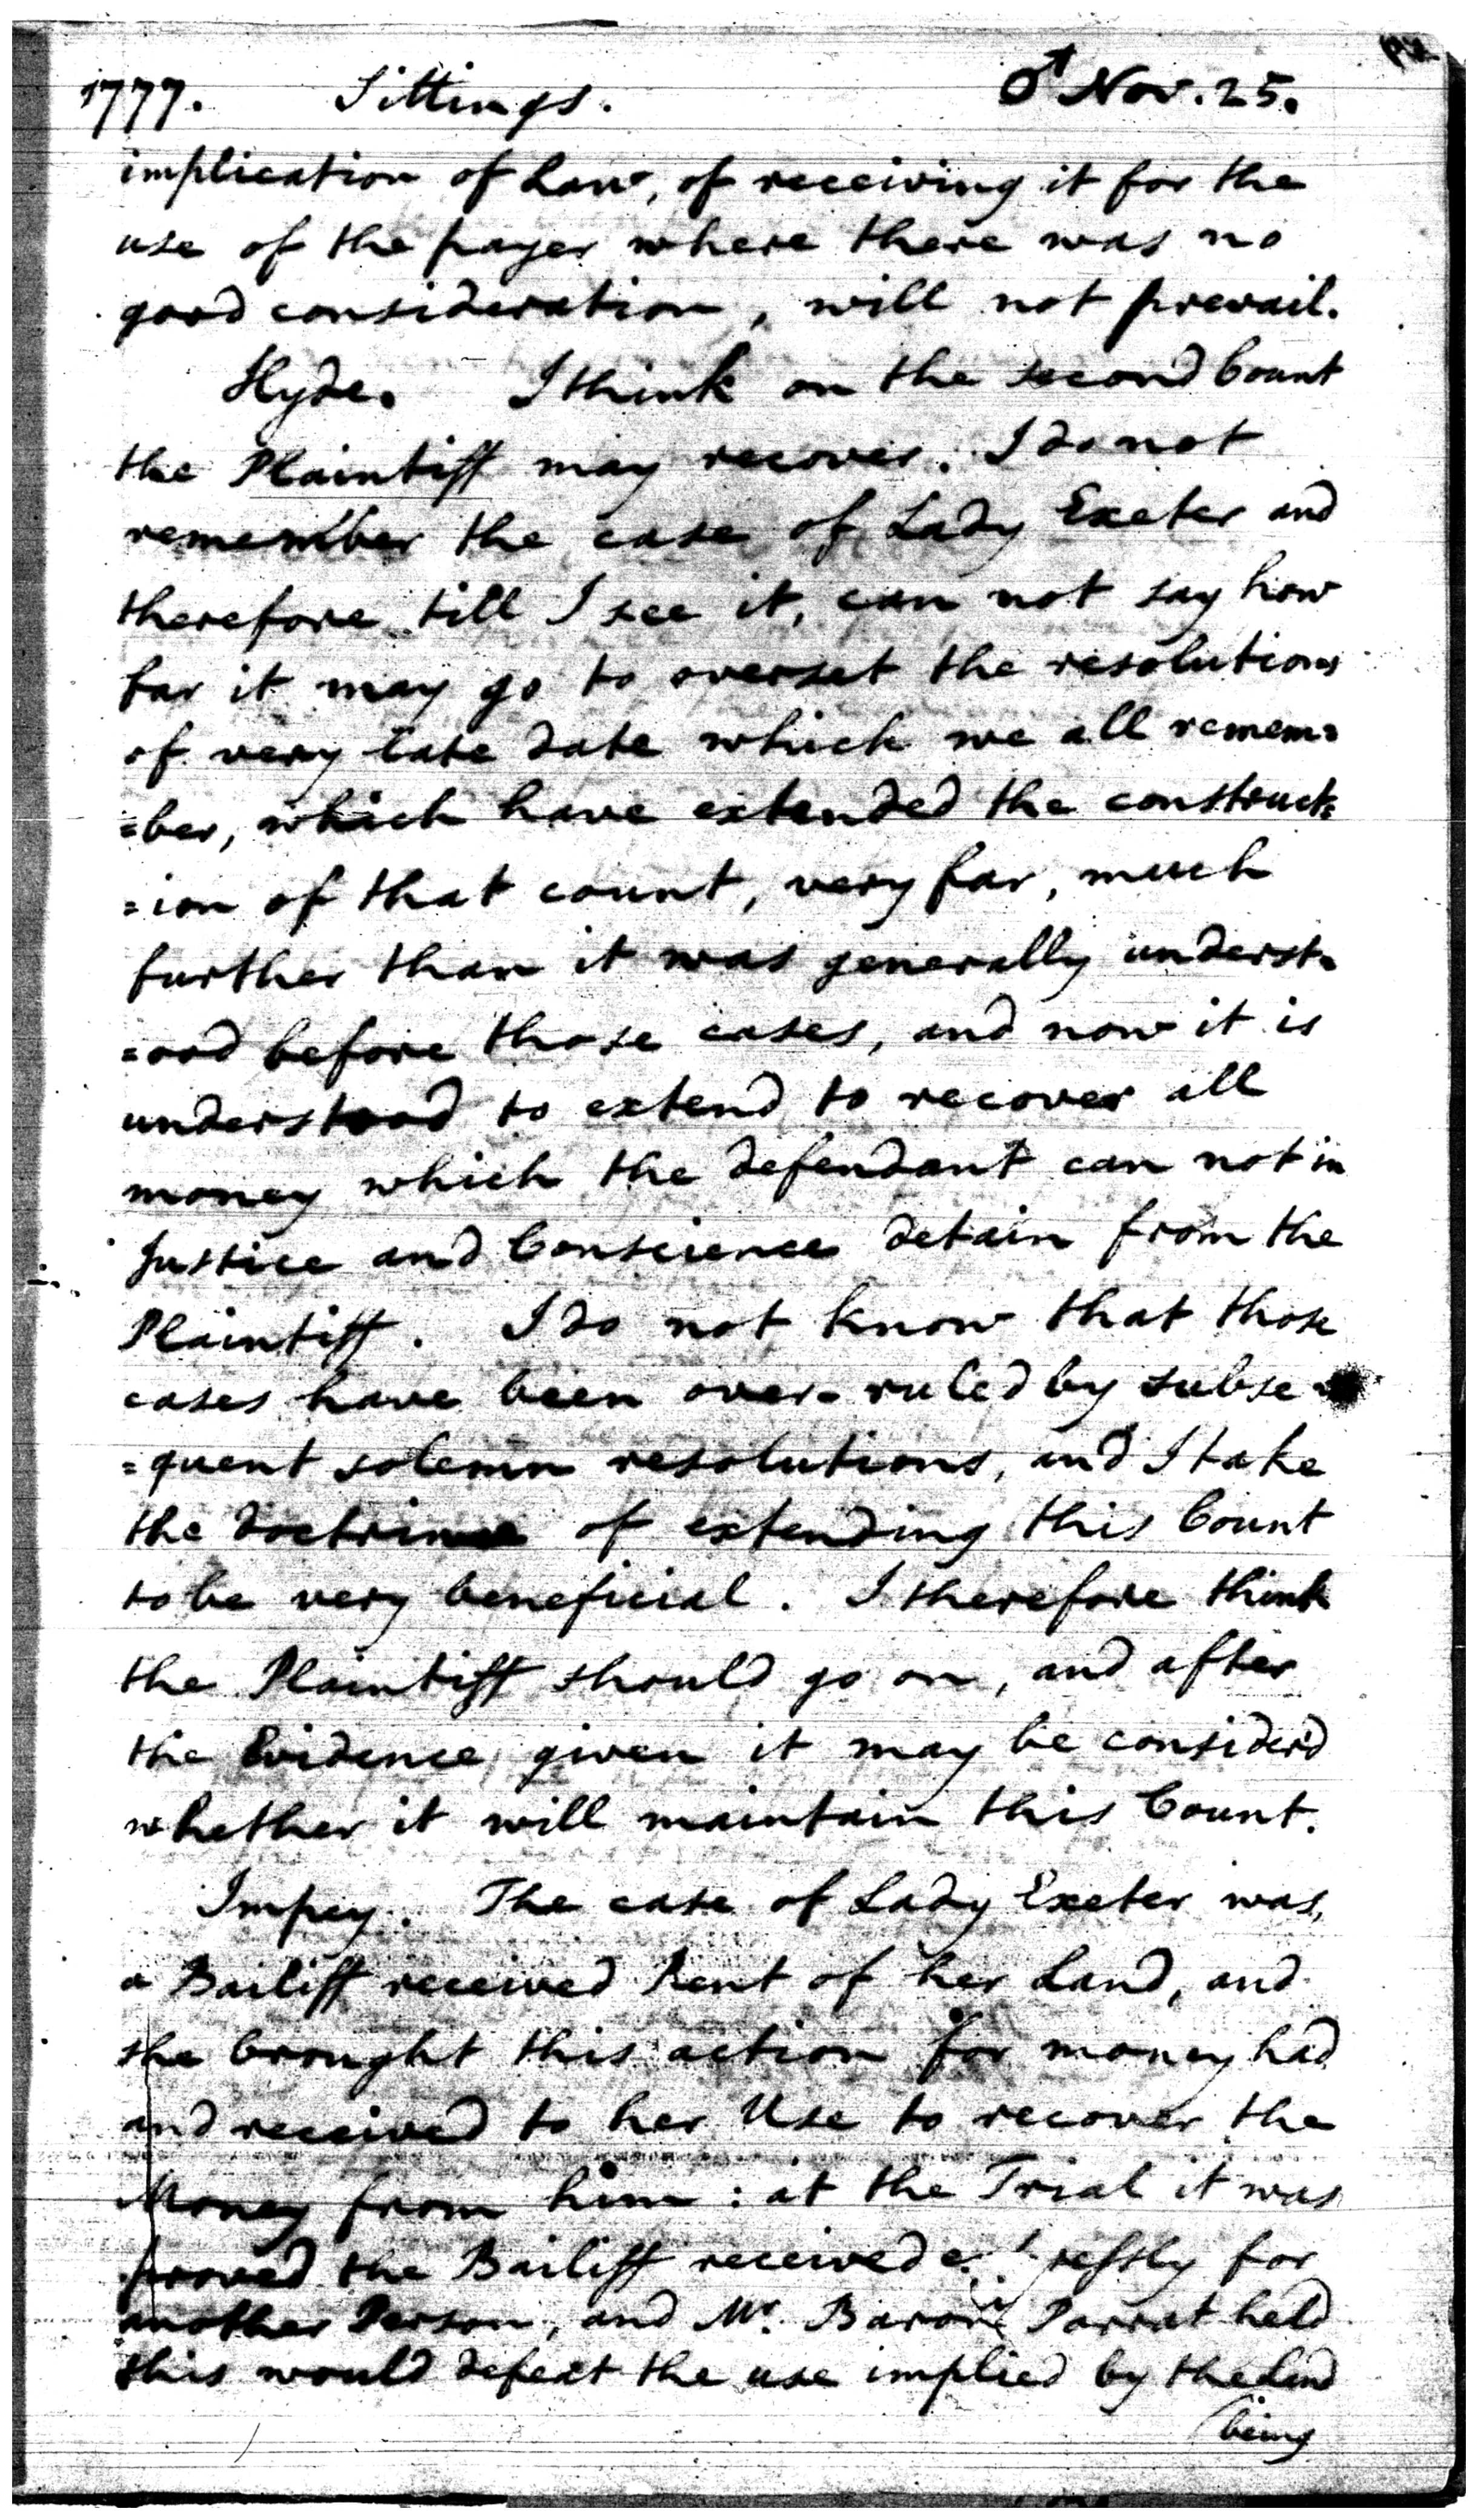 1777. Sittings. ♂ Nov. 25.
implication of Law, of receiving it for the
use of the payer where there was no
good consideration, will not prevail.
Hyde. I think on the second Count
the Plaintiff may recover. I do not
remember the case of Lady Exeter and
therefore till I see it, can not say how
far it may go to overset the resolutions
of very late date which we all remem=
=ber, which have extended the construct=
=ion of that count, very far, much
further than it was generally underst=
=ood before those cases, and now it is
understood to extend to recover all
money which the defendant can not in
Justice and Conscience detain from the
Plaintiff. I do not know that those
cases have been over-ruled by subse=
=quent solemn resolutions, and I take
the doctrine of extending this Count
to be very beneficial. I therefore think
the Plaintiff should go on, and after
the Evidence given it may be consider'd
whether it will maintain this Count.
Impey. The case of Lady Exeter was,
a Bailiff received Rent of her Land, and
she brought this action for money had
and received to her Use to recover the
Money from him: at the Trial it was
proved the Bailiff received expressly for
another Person, and Mr. Baron Parrat held
this would defeat the use implied by the Land
being